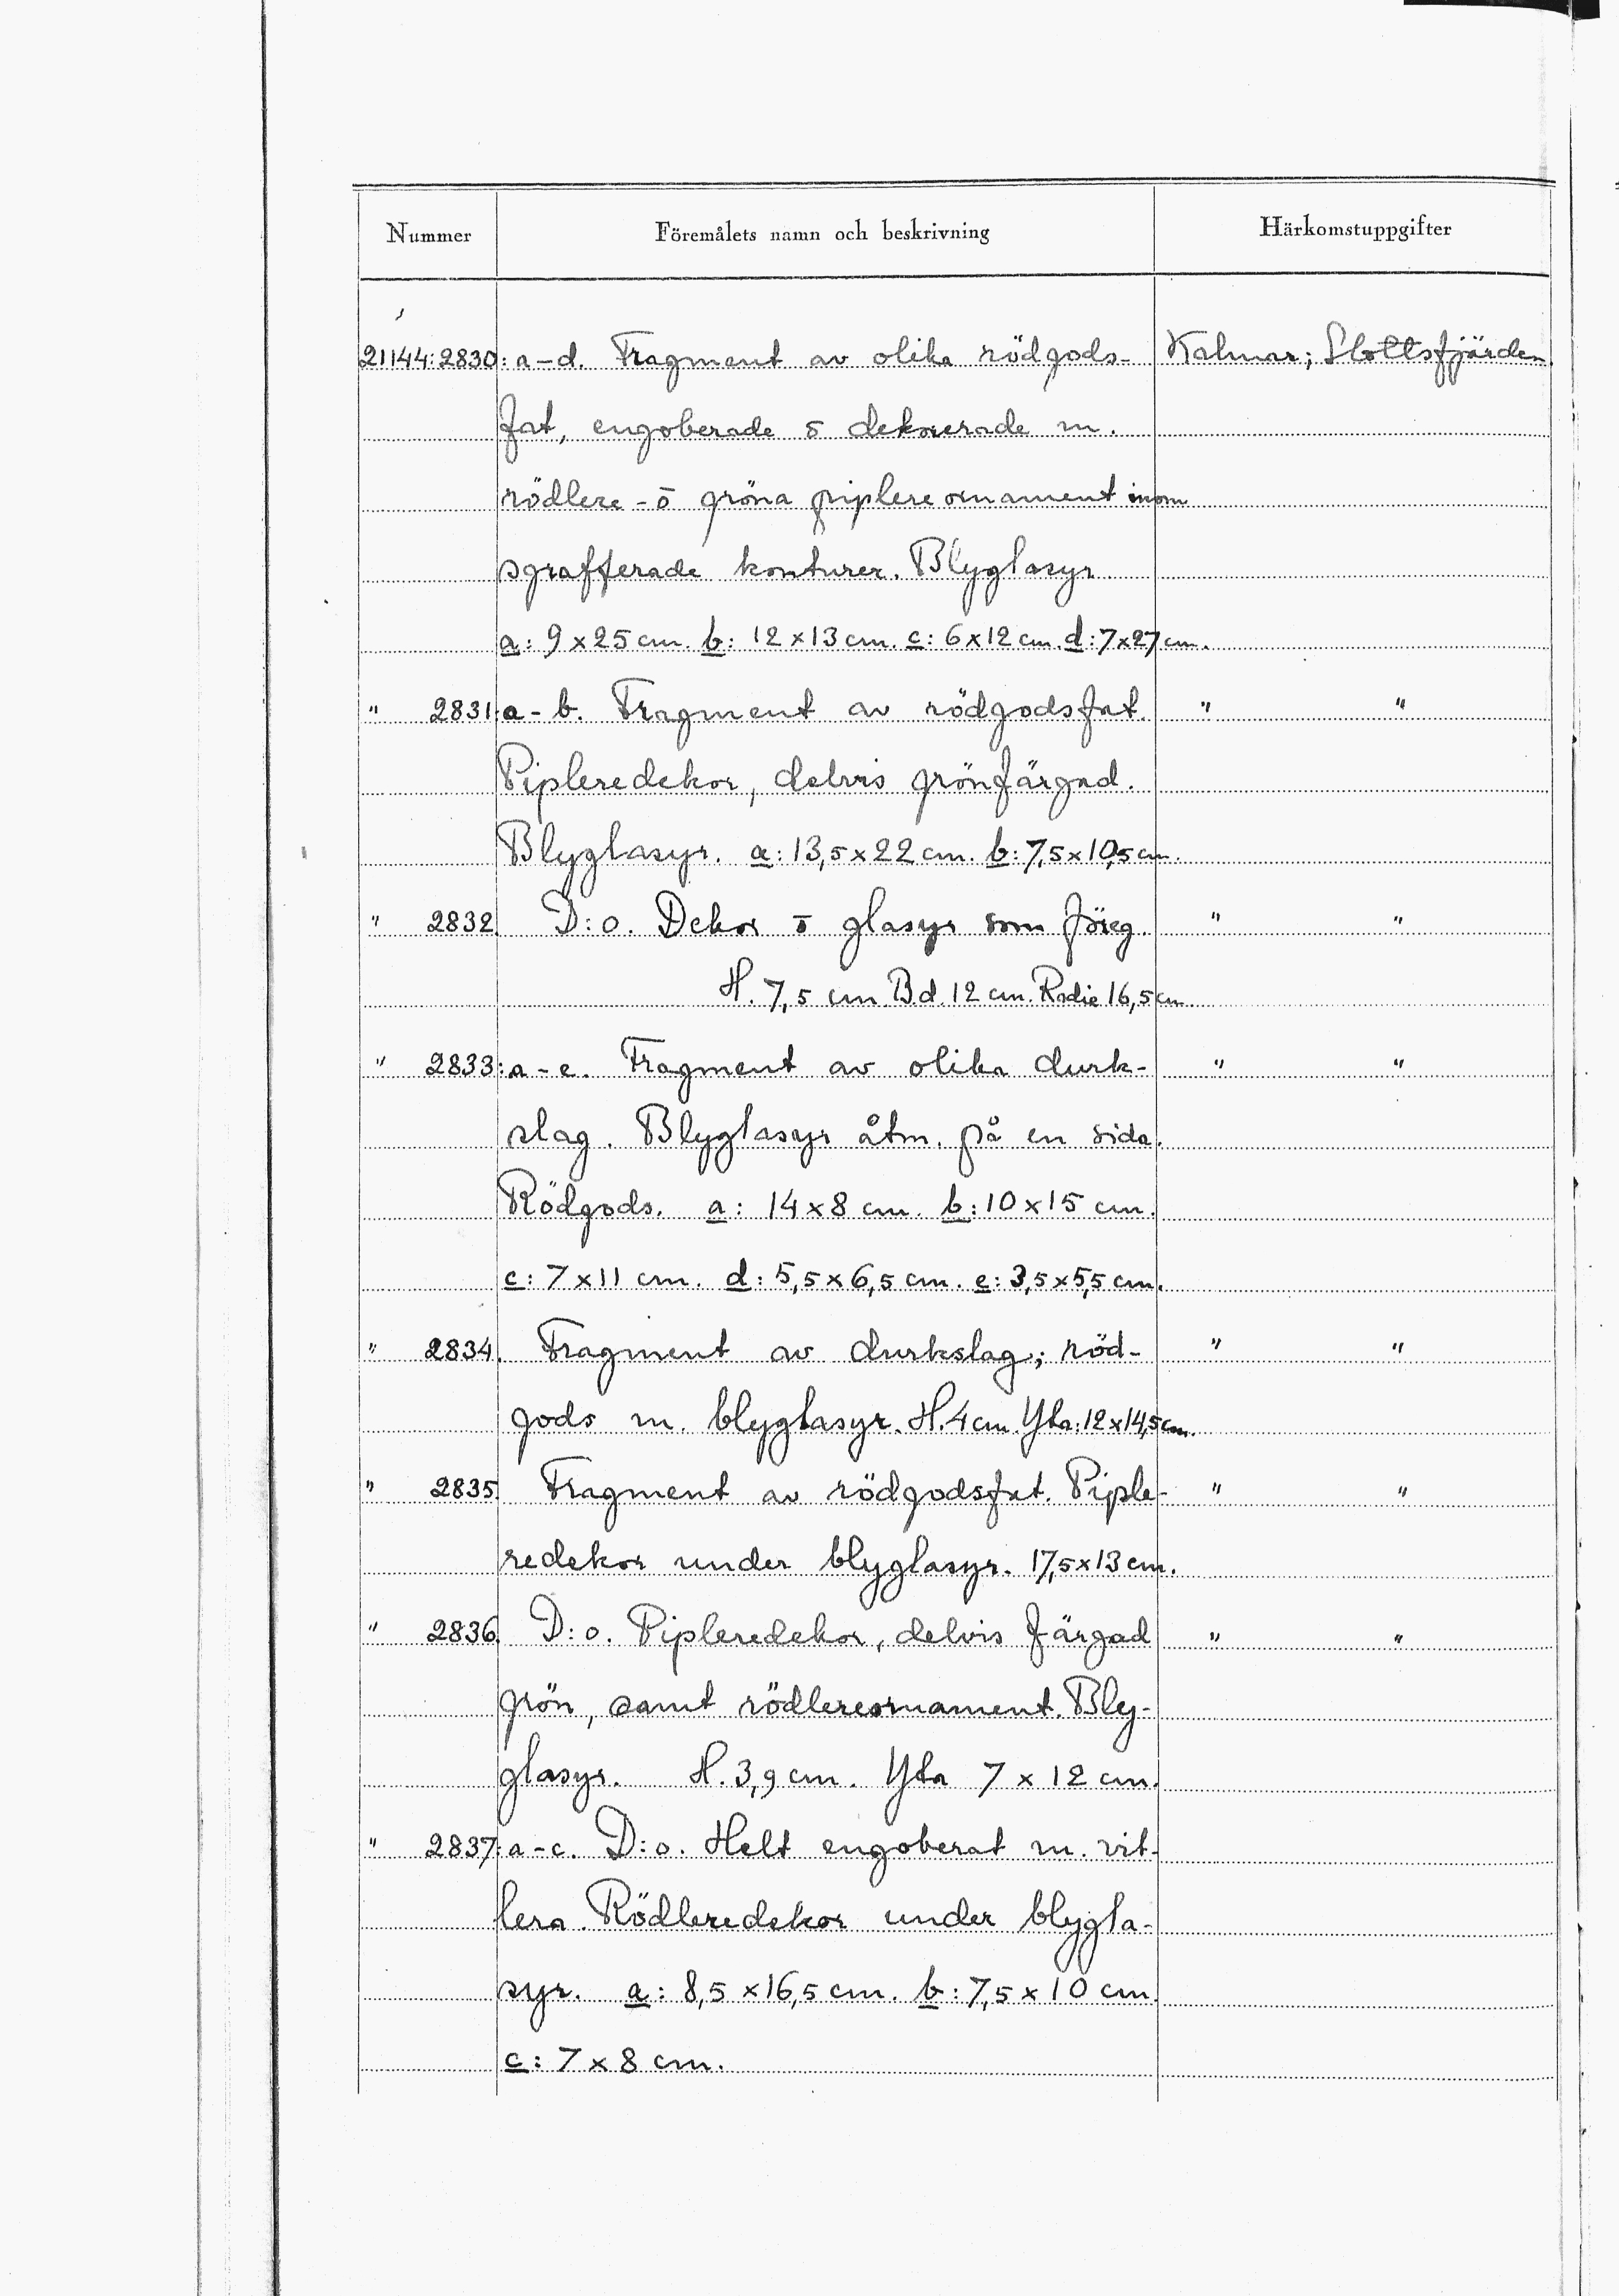 Nummer Föremålets namn och beskrivning Härkomstuppgifter
21144:2830: a-d. Fragment av olika rödgods- Kalmar; Slottsfjärden.
fat, engoberade ō dekorerade m.
rödlere- ō gröna piplereornament inom
sgrafferade konturer. Blyglasyr
a: 9 x 25 cm. b: 12 x 13 cm. c: 6 x 12 cm. d: 7 x 27 cm.
" 2831: a-b. Fragment av rödgodsfat. " "
Pipleredekor, delvis grönfärgad.
Blyglasyr. a: 13,5 x 22 cm. b: 7,5 x 10,5 cm.
" 2832. D:o. Dekor ō glasyr som föreg. " "
H. 7,5 cm Bd. 12 cm. Radie 16,5 cm.
" 2833: a-e. Fragment av olika durk- " "
slag. Blyglasyr åtm. på en sida.
Rödgods. a: 14 x 8 cm. b: 10 x 15 cm.
c: 7 x 11 cm. d: 5,5 x 6,5 cm. e: 3,5 x 5,5 cm.
" 2834. Fragment av durkslag; röd- " "
gods m. blyglasyr. H. 4 cm. Yta: 12 x 14,5 cm.
" 2835. Fragment av rödgodsfat. Piple- " "
redekor under blyglasyr. 17,5 x 13 cm.
" 2836. D:o. Pipleredekor, delvis färgad " "
grön, samt rödlereornament. Bly-
glasyr. H. 3,9 cm. Yta 7 x 12 cm.
" 2837: a-c. D:o. Helt engoberat m. vit-
lera. Rödleredekor under blygla-
syr. a: 8,5 x 16,5 cm. b: 7,5 x 10 cm.
c: 7 x 8 cm.